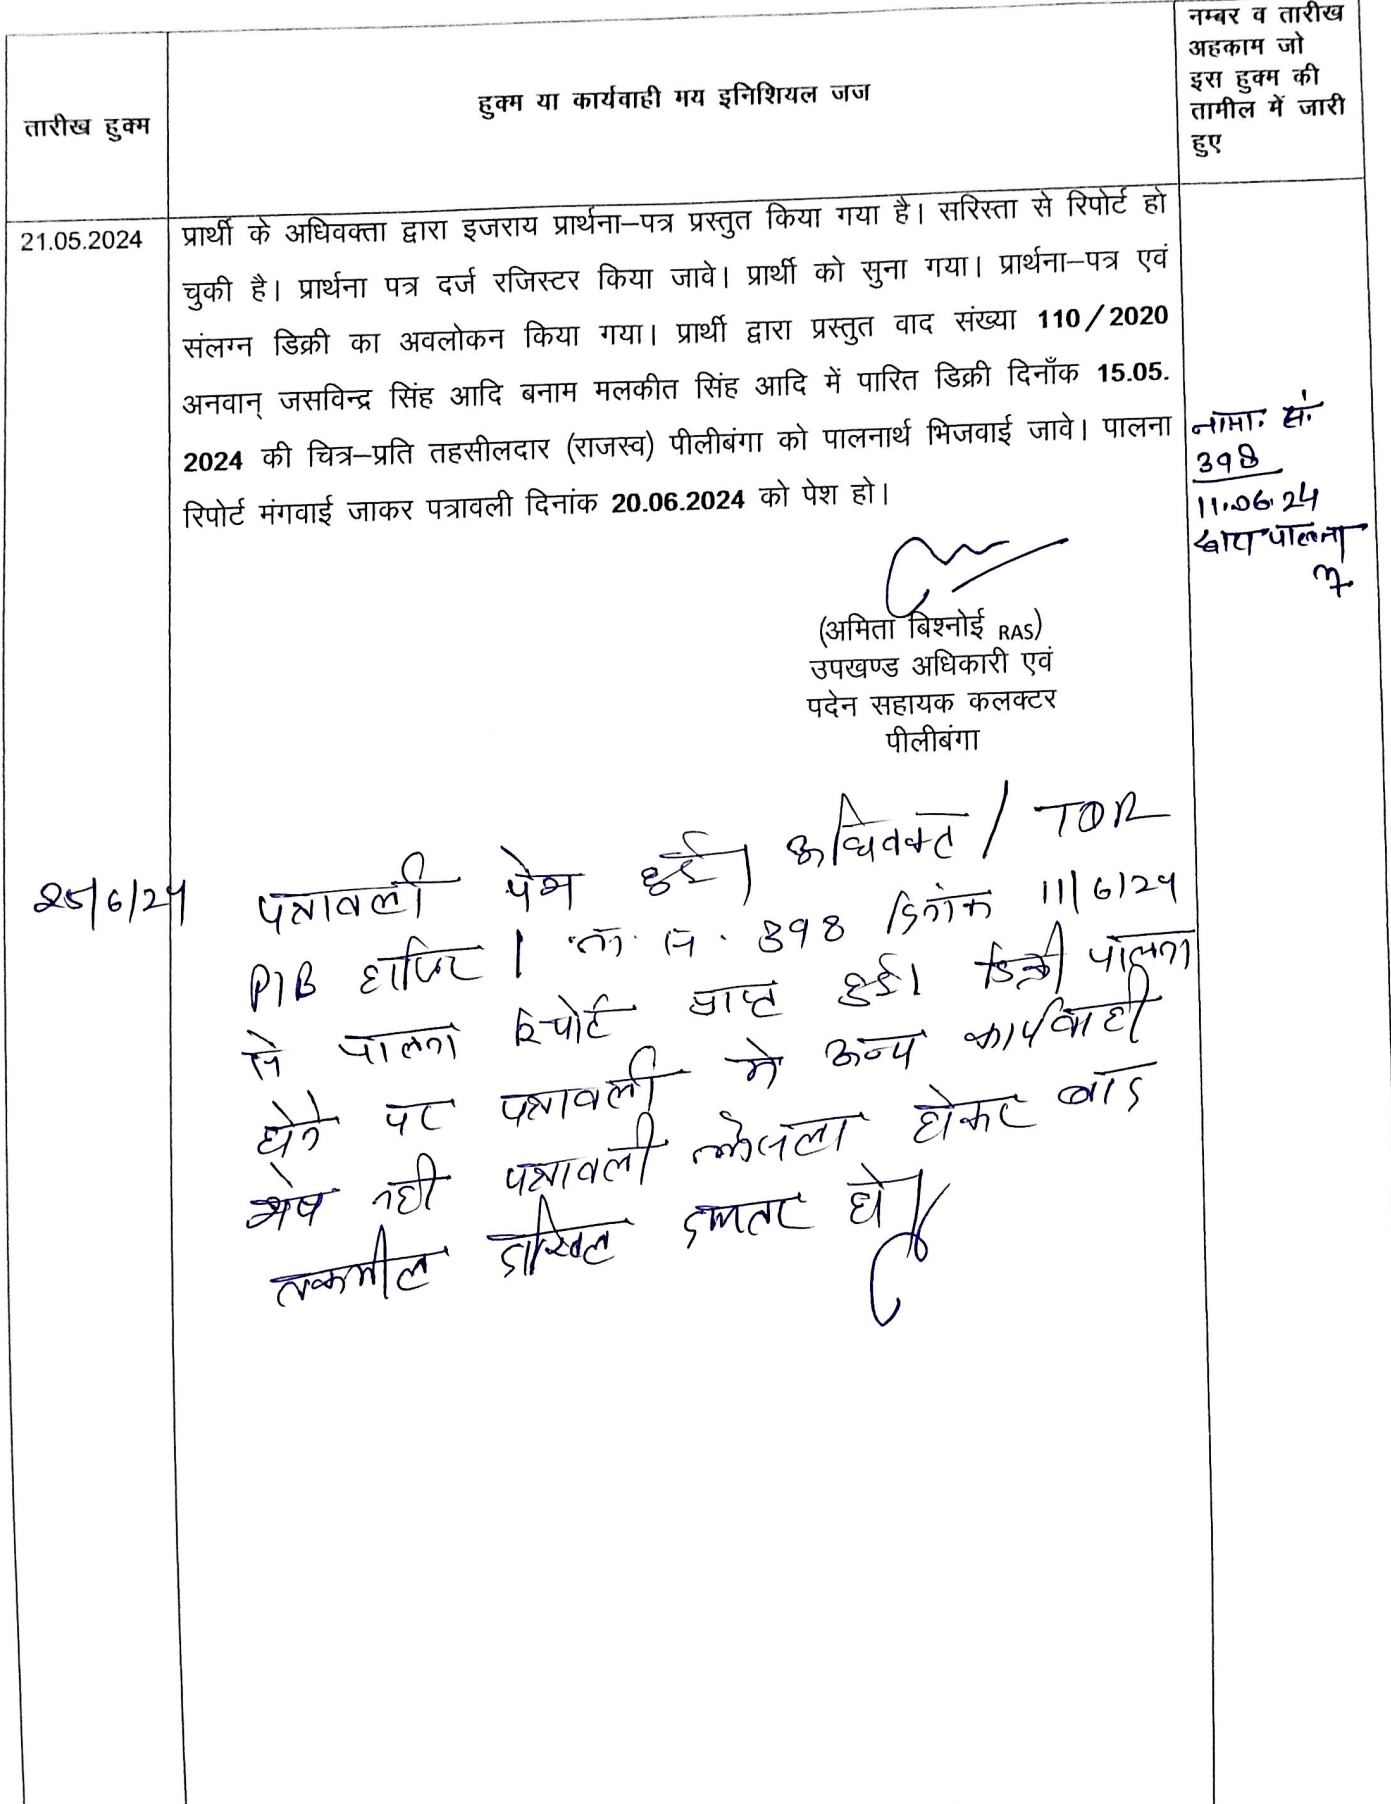 तारीख हुक्म
हुक्म या कार्यवाही मय इनिशियल जज
नम्बर व तारीख
अहकाम जो
इस हुक्म की
तामील में जारी
हुए
21.05.2024
प्रार्थी के अधिवक्ता द्वारा इजराय प्रार्थना–पत्र प्रस्तुत किया गया है। सरिस्ता से रिपोर्ट हो
चुकी है। प्रार्थना पत्र दर्ज रजिस्टर किया जावे। प्रार्थी को सुना गया। प्रार्थना–पत्र एवं
संलग्न डिक्री का अवलोकन किया गया। प्रार्थी द्वारा प्रस्तुत वाद संख्या 110/2020
अनवान् जसविन्द्र सिंह आदि बनाम मलकीत सिंह आदि में पारित डिक्री दिनाँक 15.05.
2024 की चित्र–प्रति तहसीलदार (राजस्व) पीलीबंगा को पालनार्थ भिजवाई जावे। पालना
रिपोर्ट मंगवाई जाकर पत्रावली दिनांक 20.06.2024 को पेश हो।
नामा. सं.
398
11.06.24
द्वारा पालना
(अमिता बिश्नोई RAS)
उपखण्ड अधिकारी एवं
पदेन सहायक कलक्टर
पीलीबंगा
25/6/24
पत्रावली पेश हुई। अधिवक्ता / TDR
PIB हाजिर। 398 दिनांक 11/6/24
से पालना रिपोर्ट प्राप्त हुई। डिक्री पालना
होने पर पत्रावली मे अन्य कार्यवाही
शेष नही पत्रावली फैसला होकर बाद
तकमील दाखिल दफ्तर हो।